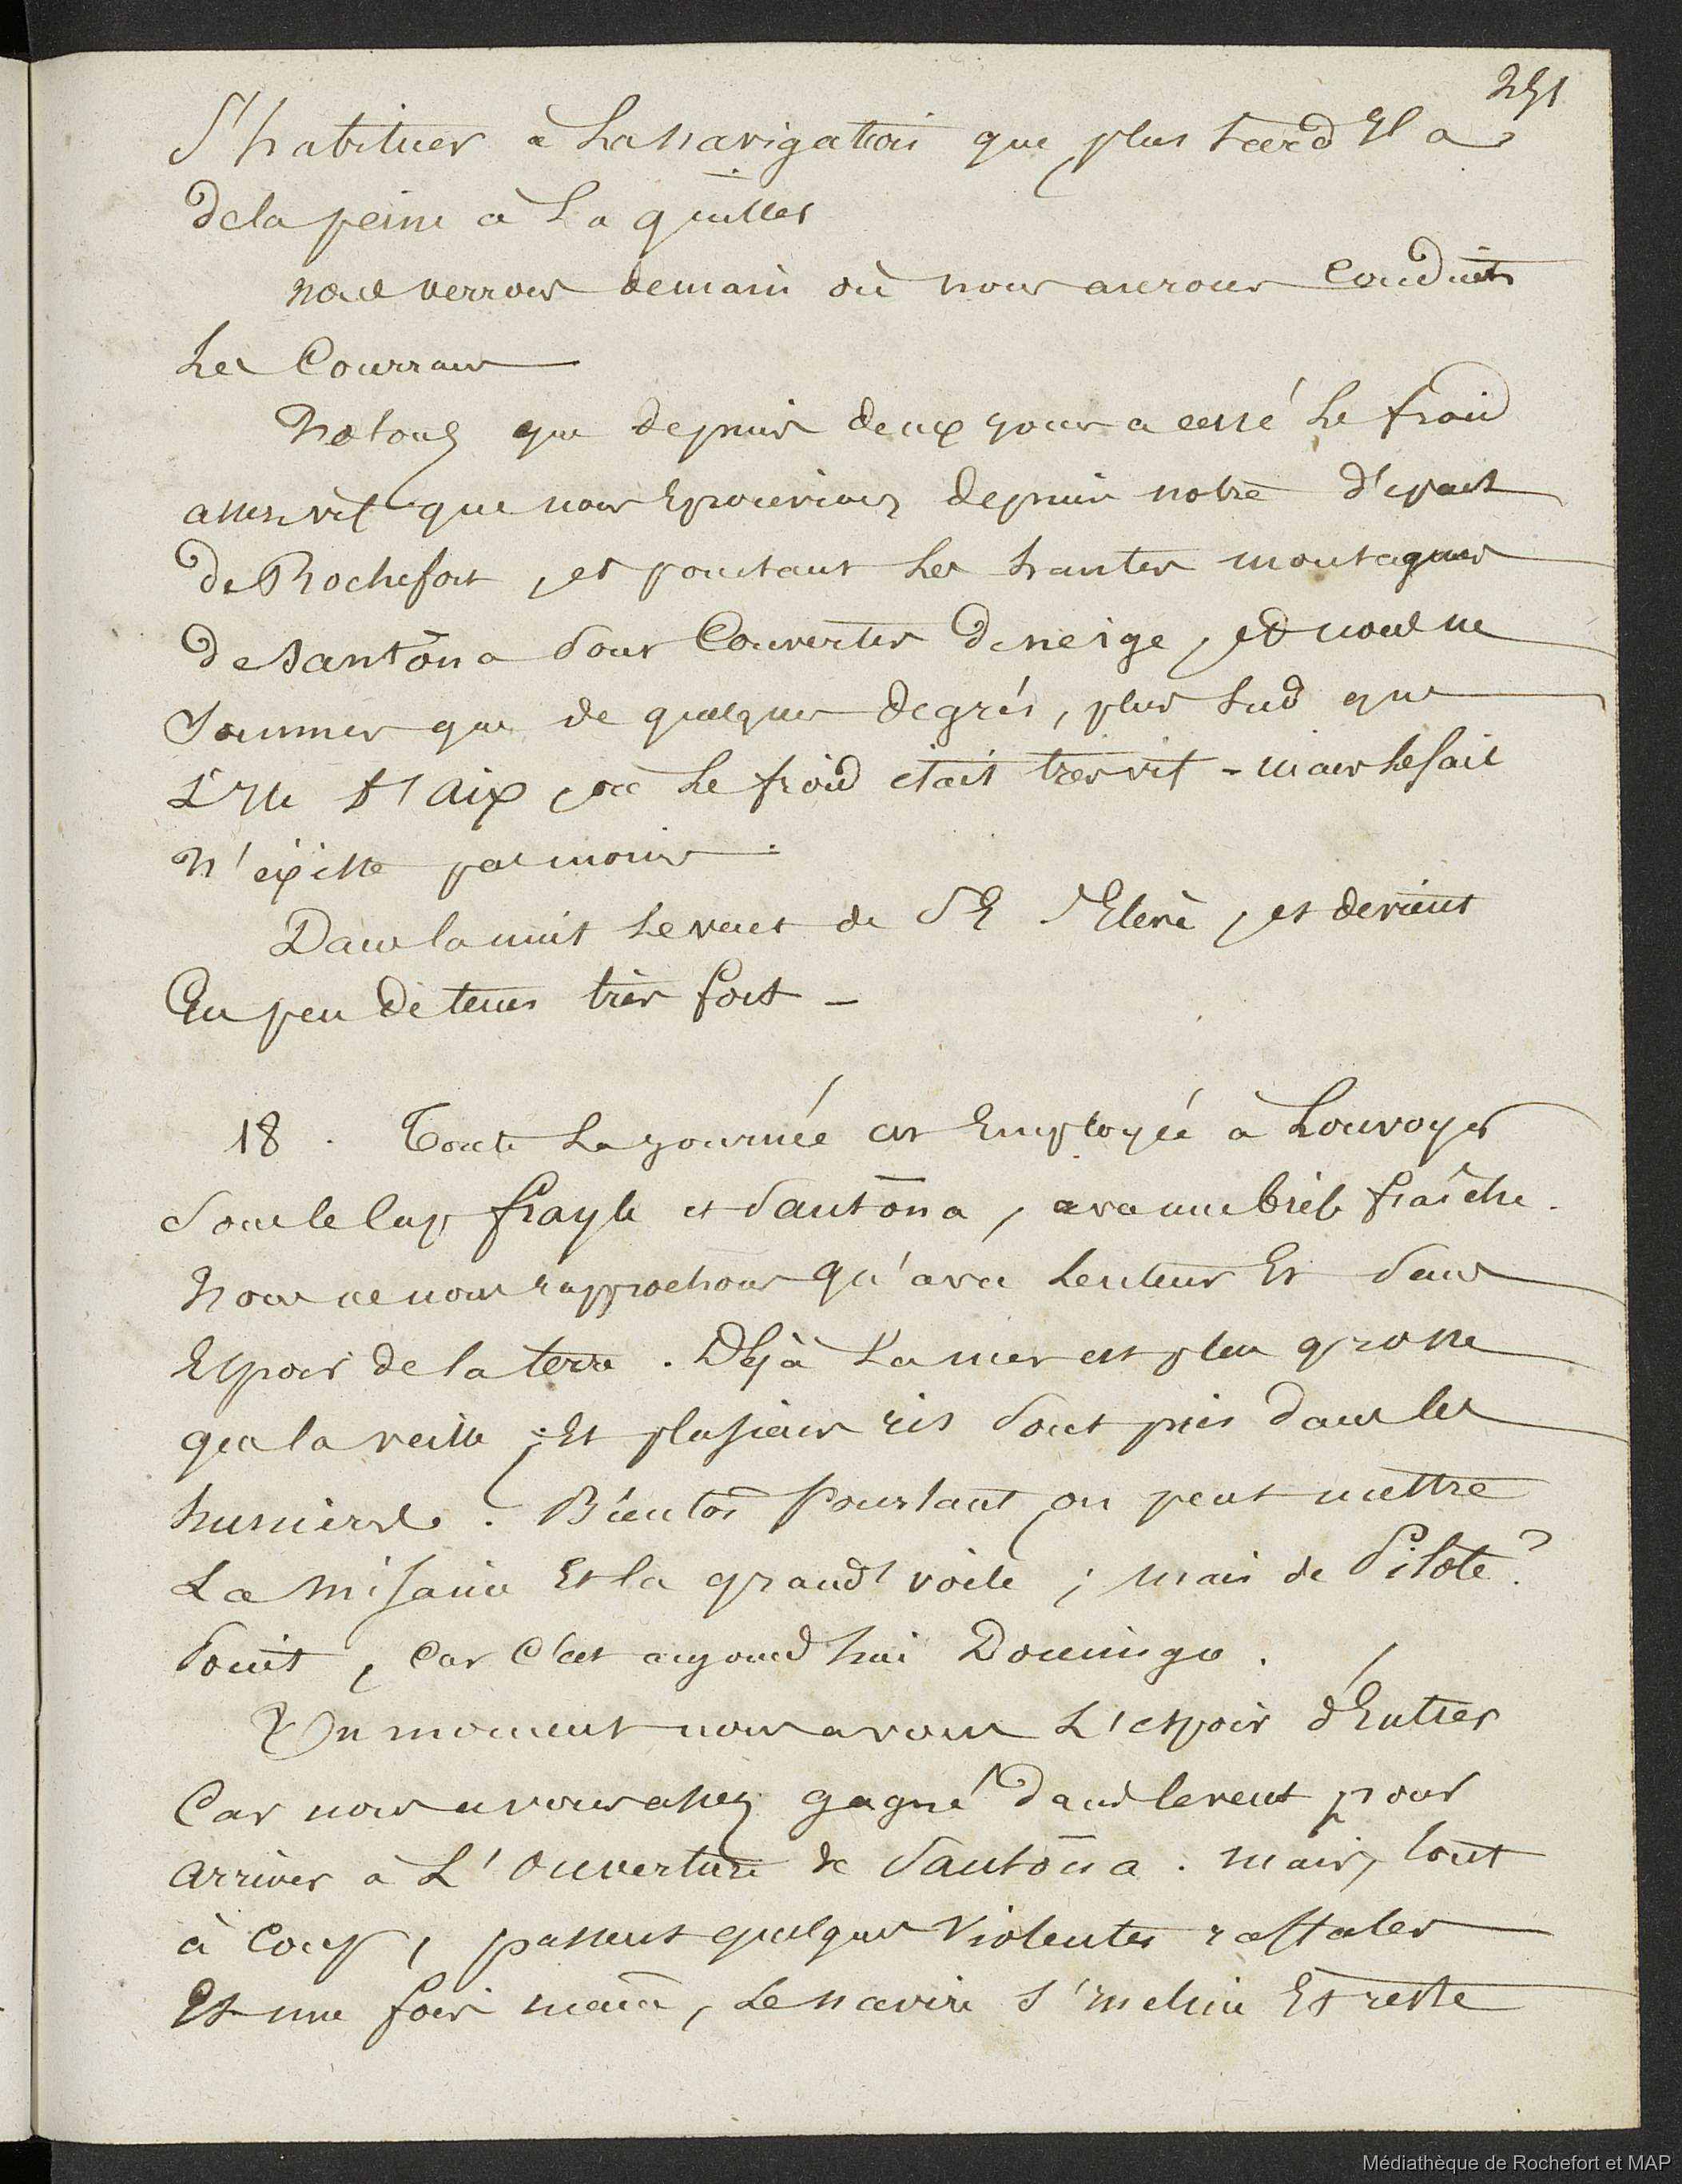 251
S'habituer à La navigation que plus tard Il a
de la peine à La quitter
nous verrons demain où nous aurons Conduits
Les Courrans
Notons que depuis deux jours a cessé Le froid
assez vif que nous Eprouvions depuis notre départ
de Rochefort, et pourtant Les hautes montagnes
de santona Sont Couvertes de neige, et nous ne
Sommes que de quelques degrés, plus Sud que
L'Ile d'aix, où Le froid était très vif - mais le fait
N'existe pas moins.
Dans la nuit Le vent de SE S'Elève, et devient
En peu de tems très fort -
18. Toute La journée est Employée à Louvoyer
Sous le Cap frayle et Santona, avec une brise fraîche.
Nous ne nous rapprochons qu'avec Lenteur Et Sans
Espoir de la terre. Déjà La mer est plus grosse
que la veille, Et plusieurs ris Sont pris dans les
huniers. Bientôt Pourtant on peut mettre
La misaine Et la grand'voile ; mais de Pilote ?
Point, Car C'est aujourd'hui Domingo.
Un moment nous avons L'espoir d'Entrer
Car nous avons assez gagné dans le vent pour
arriver à L'Ouverture de Santona. mais, tout
à Coup, passent quelques Violentes raffales
Et une fois , Le navire S'incline Et reste
Médiathèque de Rochefort et MAP